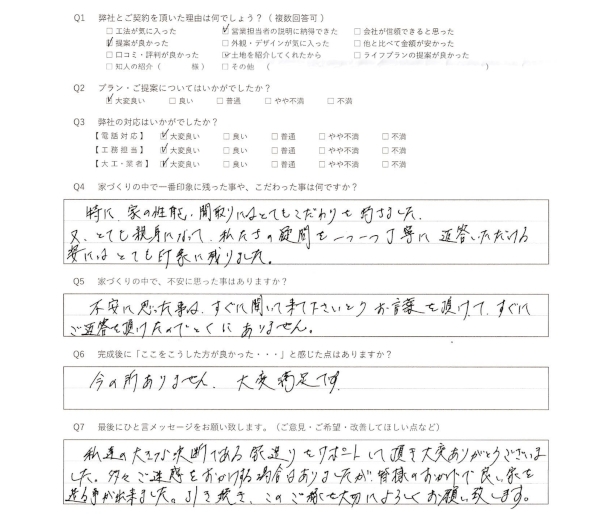 Q1 弊社とご契約を頂いた理由は何でしょう?(複数回答可)
□工法が気に入った ☑営業担当者の説明に納得できた □会社が信頼できると思った
☑提案が良かった □外観・デザインが気に入った □他と比べて金額が安かった
□口コミ・評判が良かった ☑土地を紹介してくれたから □ライフプランの提案が良かった
□知人の紹介( 様) □その他( )
Q2 プラン・ご提案についてはいかがでしたか?
☑大変良い □良い □普通 □やや不満 □不満
Q3 弊社の対応はいかがでしたか?
【電話対応】 ☑大変良い □良い □普通 □やや不満 □不満
【工務担当】 ☑大変良い □良い □普通 □やや不満 □不満
【大工・業者】 ☑大変良い □良い □普通 □やや不満 □不満
Q4 家づくりの中で一番印象に残った事や、こだわった事は何ですか?
特に、家の性能、間取りにはとてもこだわりを持ちました。
又、とても親身になって、私たちの疑問を一つ一つ丁寧に返答いただける
姿にはとても印象に残りました。
Q5 家づくりの中で、不安に思った事はありますか?
不安に思った事は、すぐに聞いて来て下さいとのお言葉を頂けて、すぐに
ご返答を頂けたのでとくにありません。
Q6 完成後に「ここをこうした方が良かった・・・」と感じた点はありますか?
今の所ありません。大変満足です。
Q7 最後にひと言メッセージをお願い致します。(ご意見・ご希望・改善してほしい点など)
私達の大きな決断である家造りをサポートして頂き大変ありがとうございま
した。多々ご迷惑をおかけする場合はありましたが、皆様のおかげで良い家を
造る事が出来ました。引き続き、このご縁を大切によろしくお願い致します。